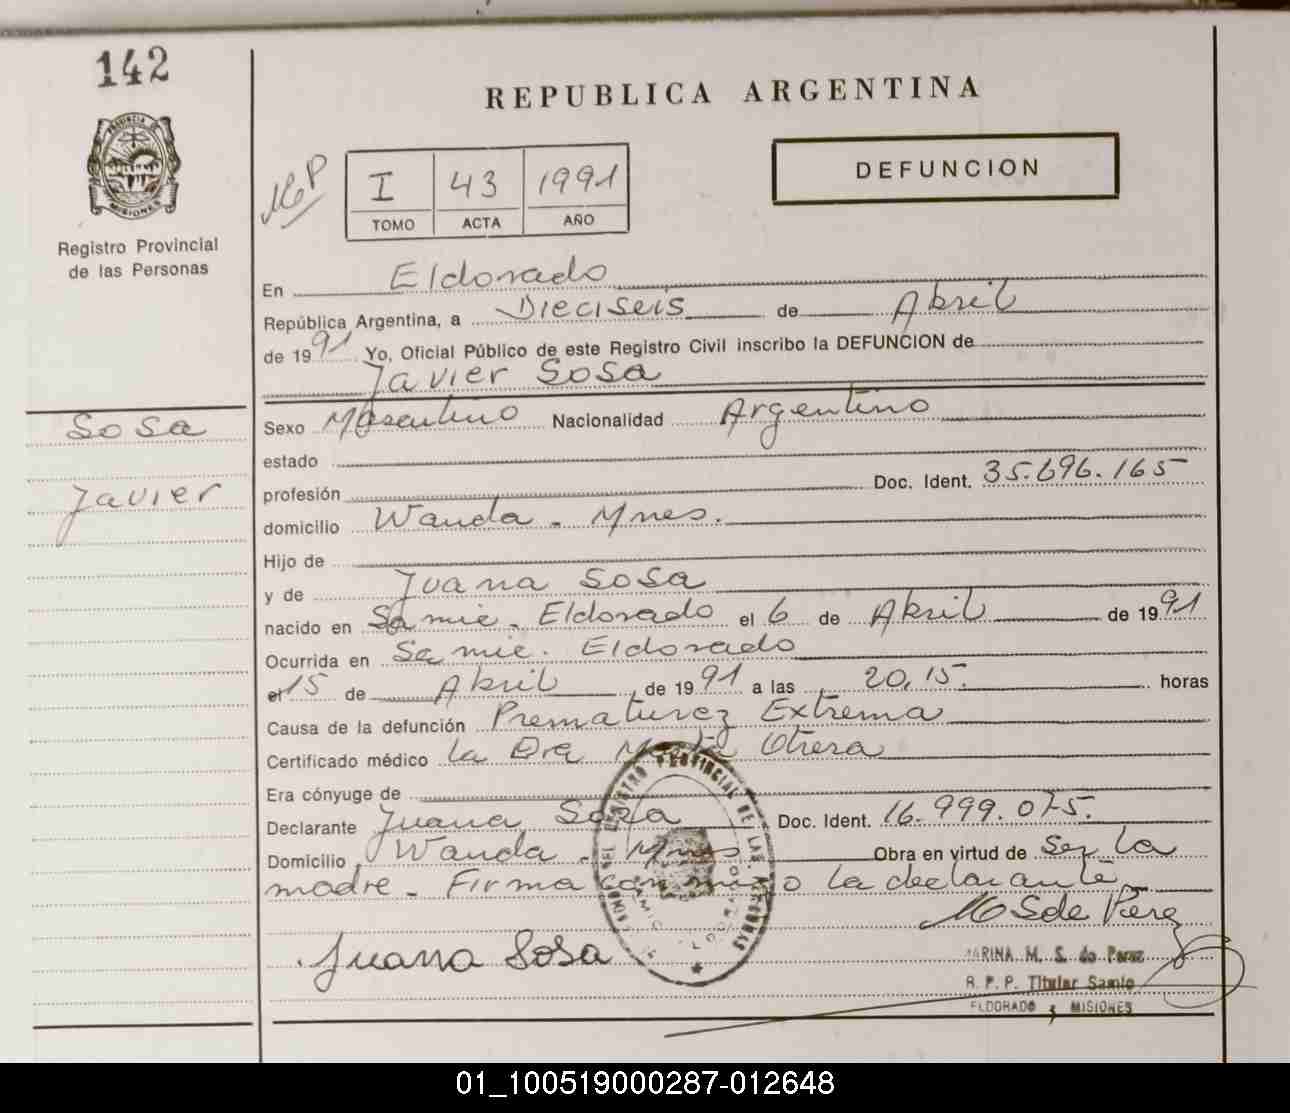 142
REPUBLICA ARGENTINA
DEFUNCION
I 43 1991
TOMO ACTA AÑO
PROVINCIA DE MISIONES
Registro Provincial
de las Personas
En Eldorado
República Argentina, a Dieciseis de Abril
de 1991 Yo, Oficial Público de este Registro Civil inscribo la DEFUNCION de
Javier Sosa
Sosa
Javier
Sexo Masculino Nacionalidad Argentino
estado
profesión Doc. Ident. 35.696.165
domicilio Wanda - Mnes.
Hijo de
y de Juana Sosa
nacido en Samic. Eldorado el 6 de Abril de 1991
Ocurrida en Samic. Eldorado
el 15 de Abril de 1991 a las 20,15. horas
Causa de la defunción Prematurez Extrema
Certificado médico la Dra
Era cónyuge de
Declarante Juana Sosa Doc. Ident. 16.999.075.
Domicilio Wanda - Mnes. Obra en virtud de Ser La
madre - Firma conmigo la declarante
M S de Perez
Juana Sosa
MARINA M. S. de Perez
R. P. P. Titular Samic
ELDORADO MISIONES
REGISTRO PROVINCIAL DE LAS PERSONAS
01_100519000287-012648